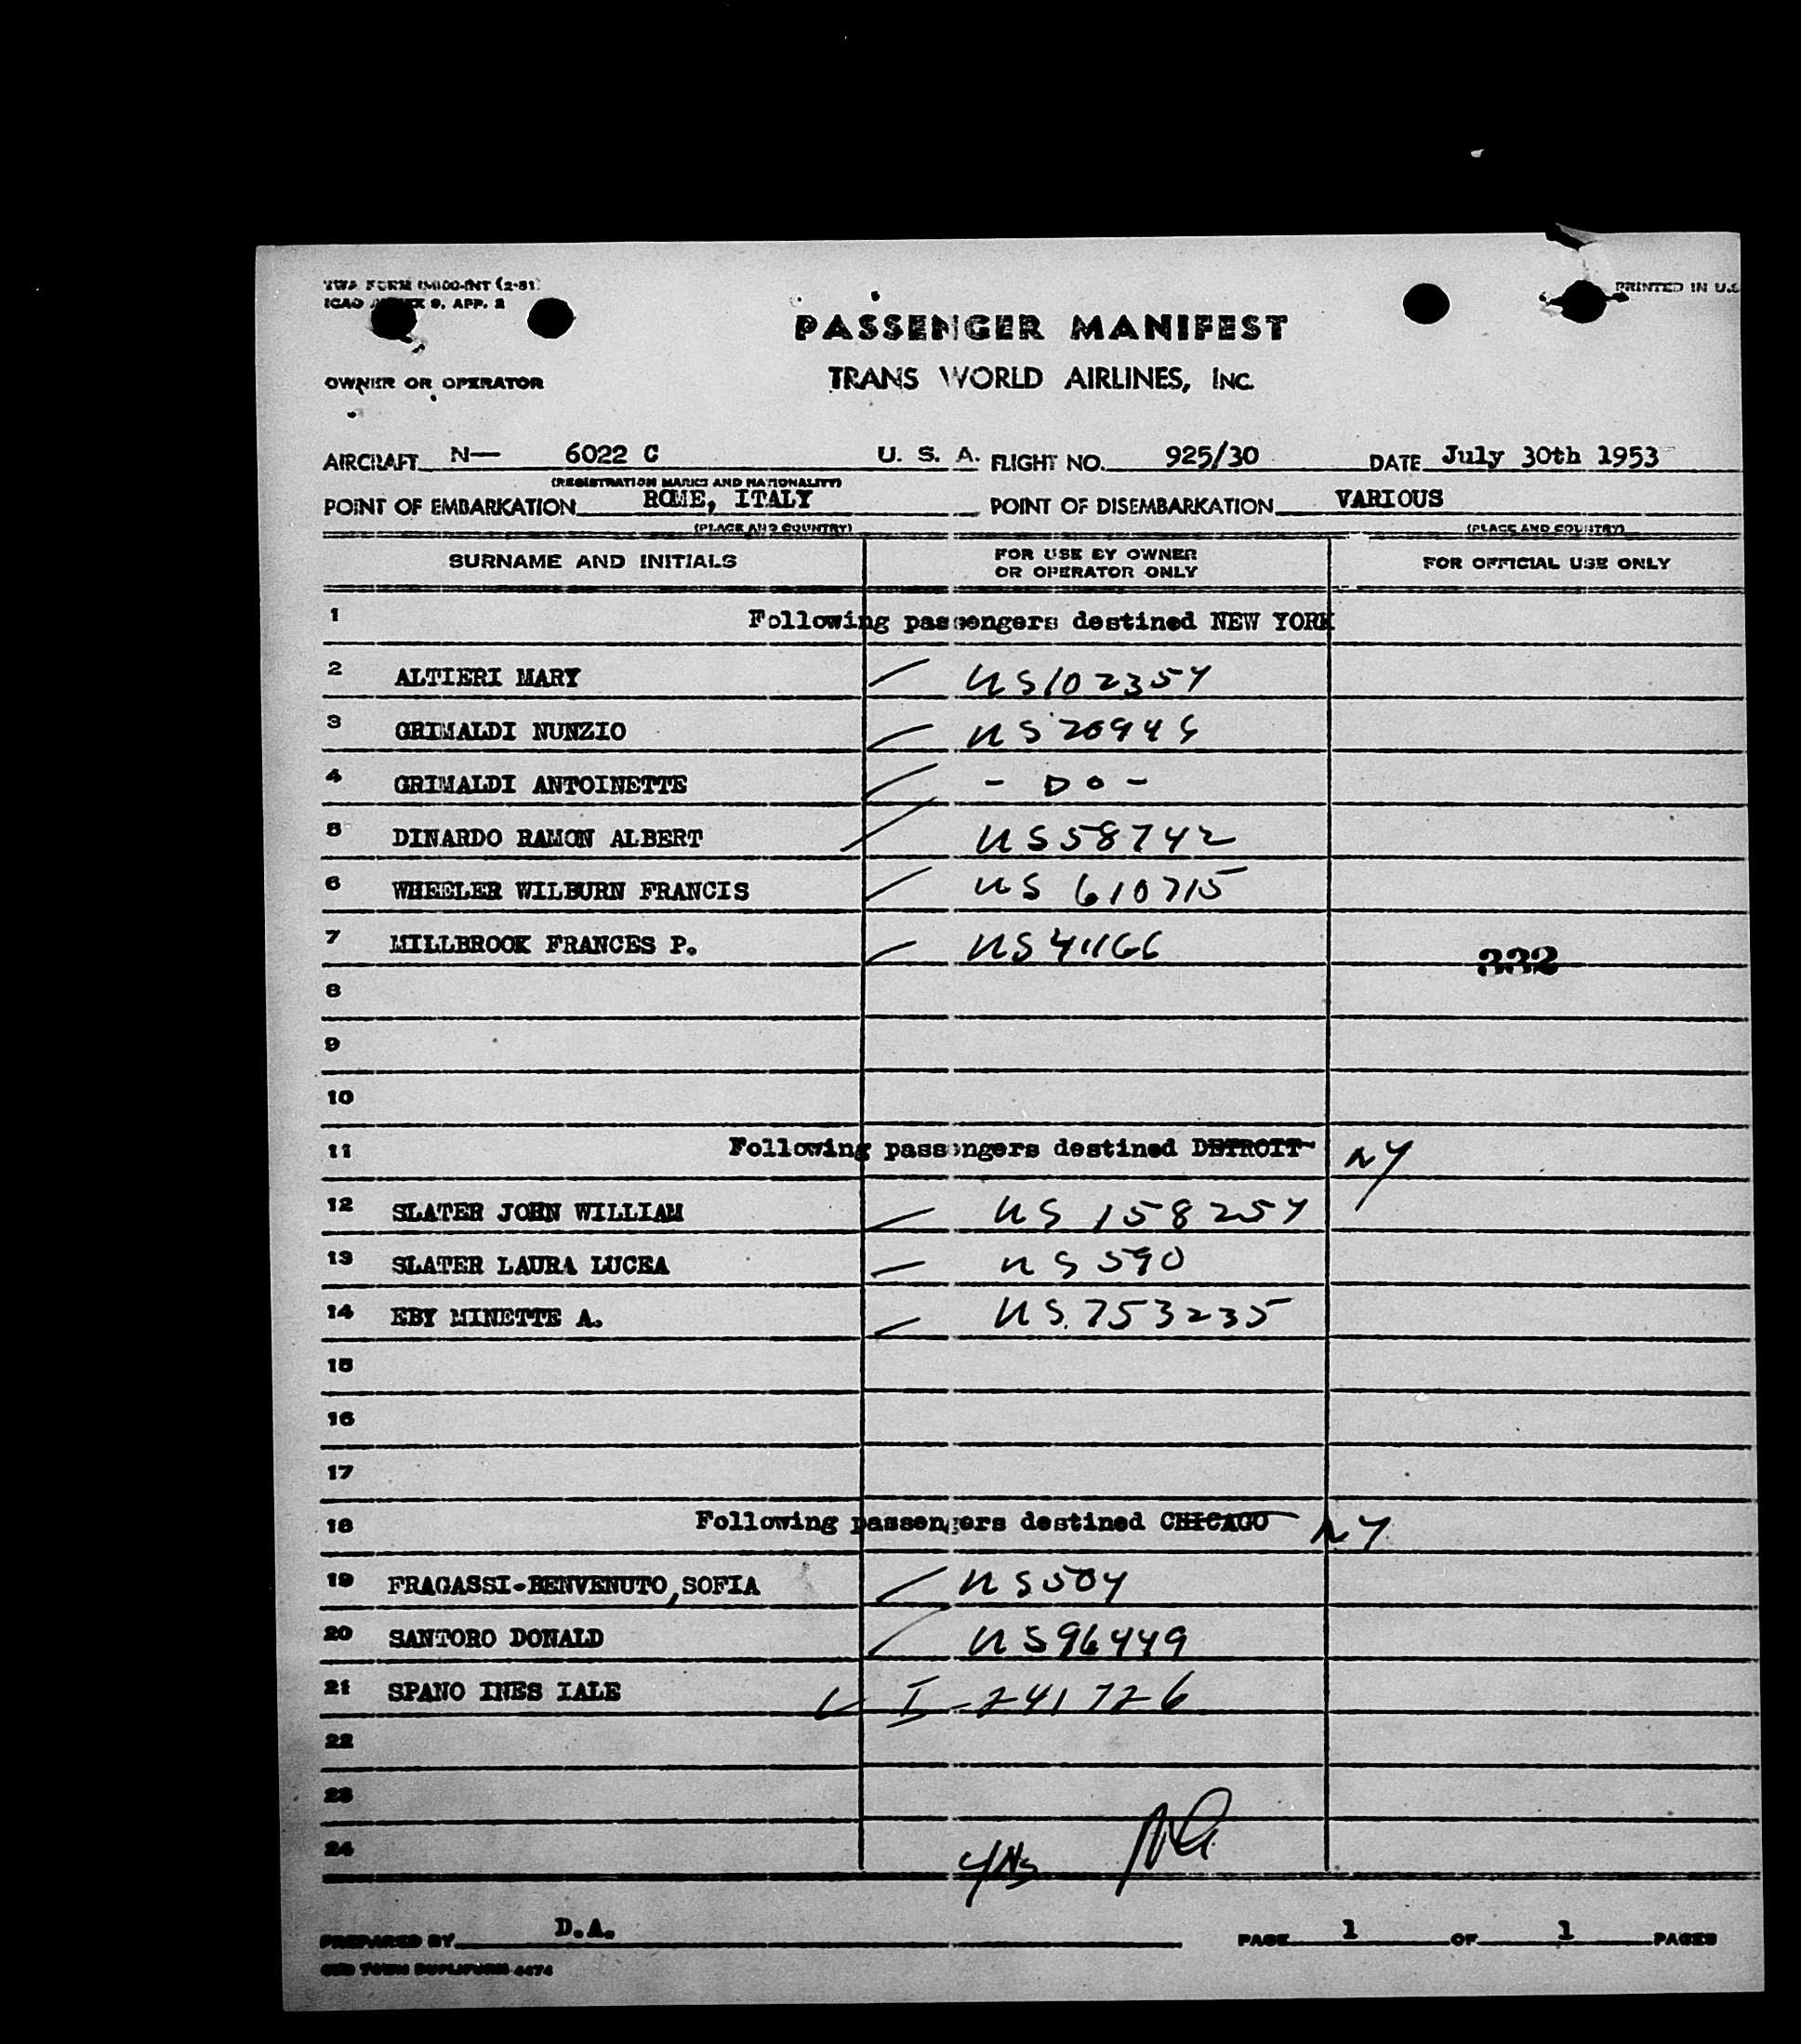 TWA FORM
ICAO 9, APP. 2
PRINTED IN U.S
PASSENGER MANIFEST
OWNER OR OPERATOR
TRANS WORLD AIRLINES, INC.
AIRCRAFT N— 6022 C U. S. A. FLIGHT NO. 925/30 DATE July 30th 1953
(REGISTRATION MARKS AND NATIONALITY)
POINT OF EMBARKATION ROME, ITALY POINT OF DISEMBARKATION VARIOUS
(PLACE AND COUNTRY) (PLACE AND COUNTRY)
SURNAME AND INITIALS FOR USE BY OWNER OR OPERATOR ONLY FOR OFFICIAL USE ONLY
1 Following passengers destined NEW YORK
2 ALTIERI MARY US102354
3 GRIMALDI NUNZIO US
4 GRIMALDI ANTOINETTE - DO -
5 DINARDO RAMON ALBERT US58742
6 WHEELER WILBURN FRANCIS US 610715
7 MILLBROOK FRANCES P. US41166
332
8
9
10
11 Following passengers destined DETROIT NY
12 SLATER JOHN WILLIAM US 158254
13 SLATER LAURA LUCEA US 590
14 EBY MINETTE A. US 753235
15
16
17
18 Following passengers destined CHICAGO NY
19 FRAGASSI-BENVENUTO,SOFIA US504
20 SANTORO DONALD US96449
21 SPANO INES IALE I-241726
22
23
24
PREPARED BY D.A. PAGE 1 OF 1 PAGES